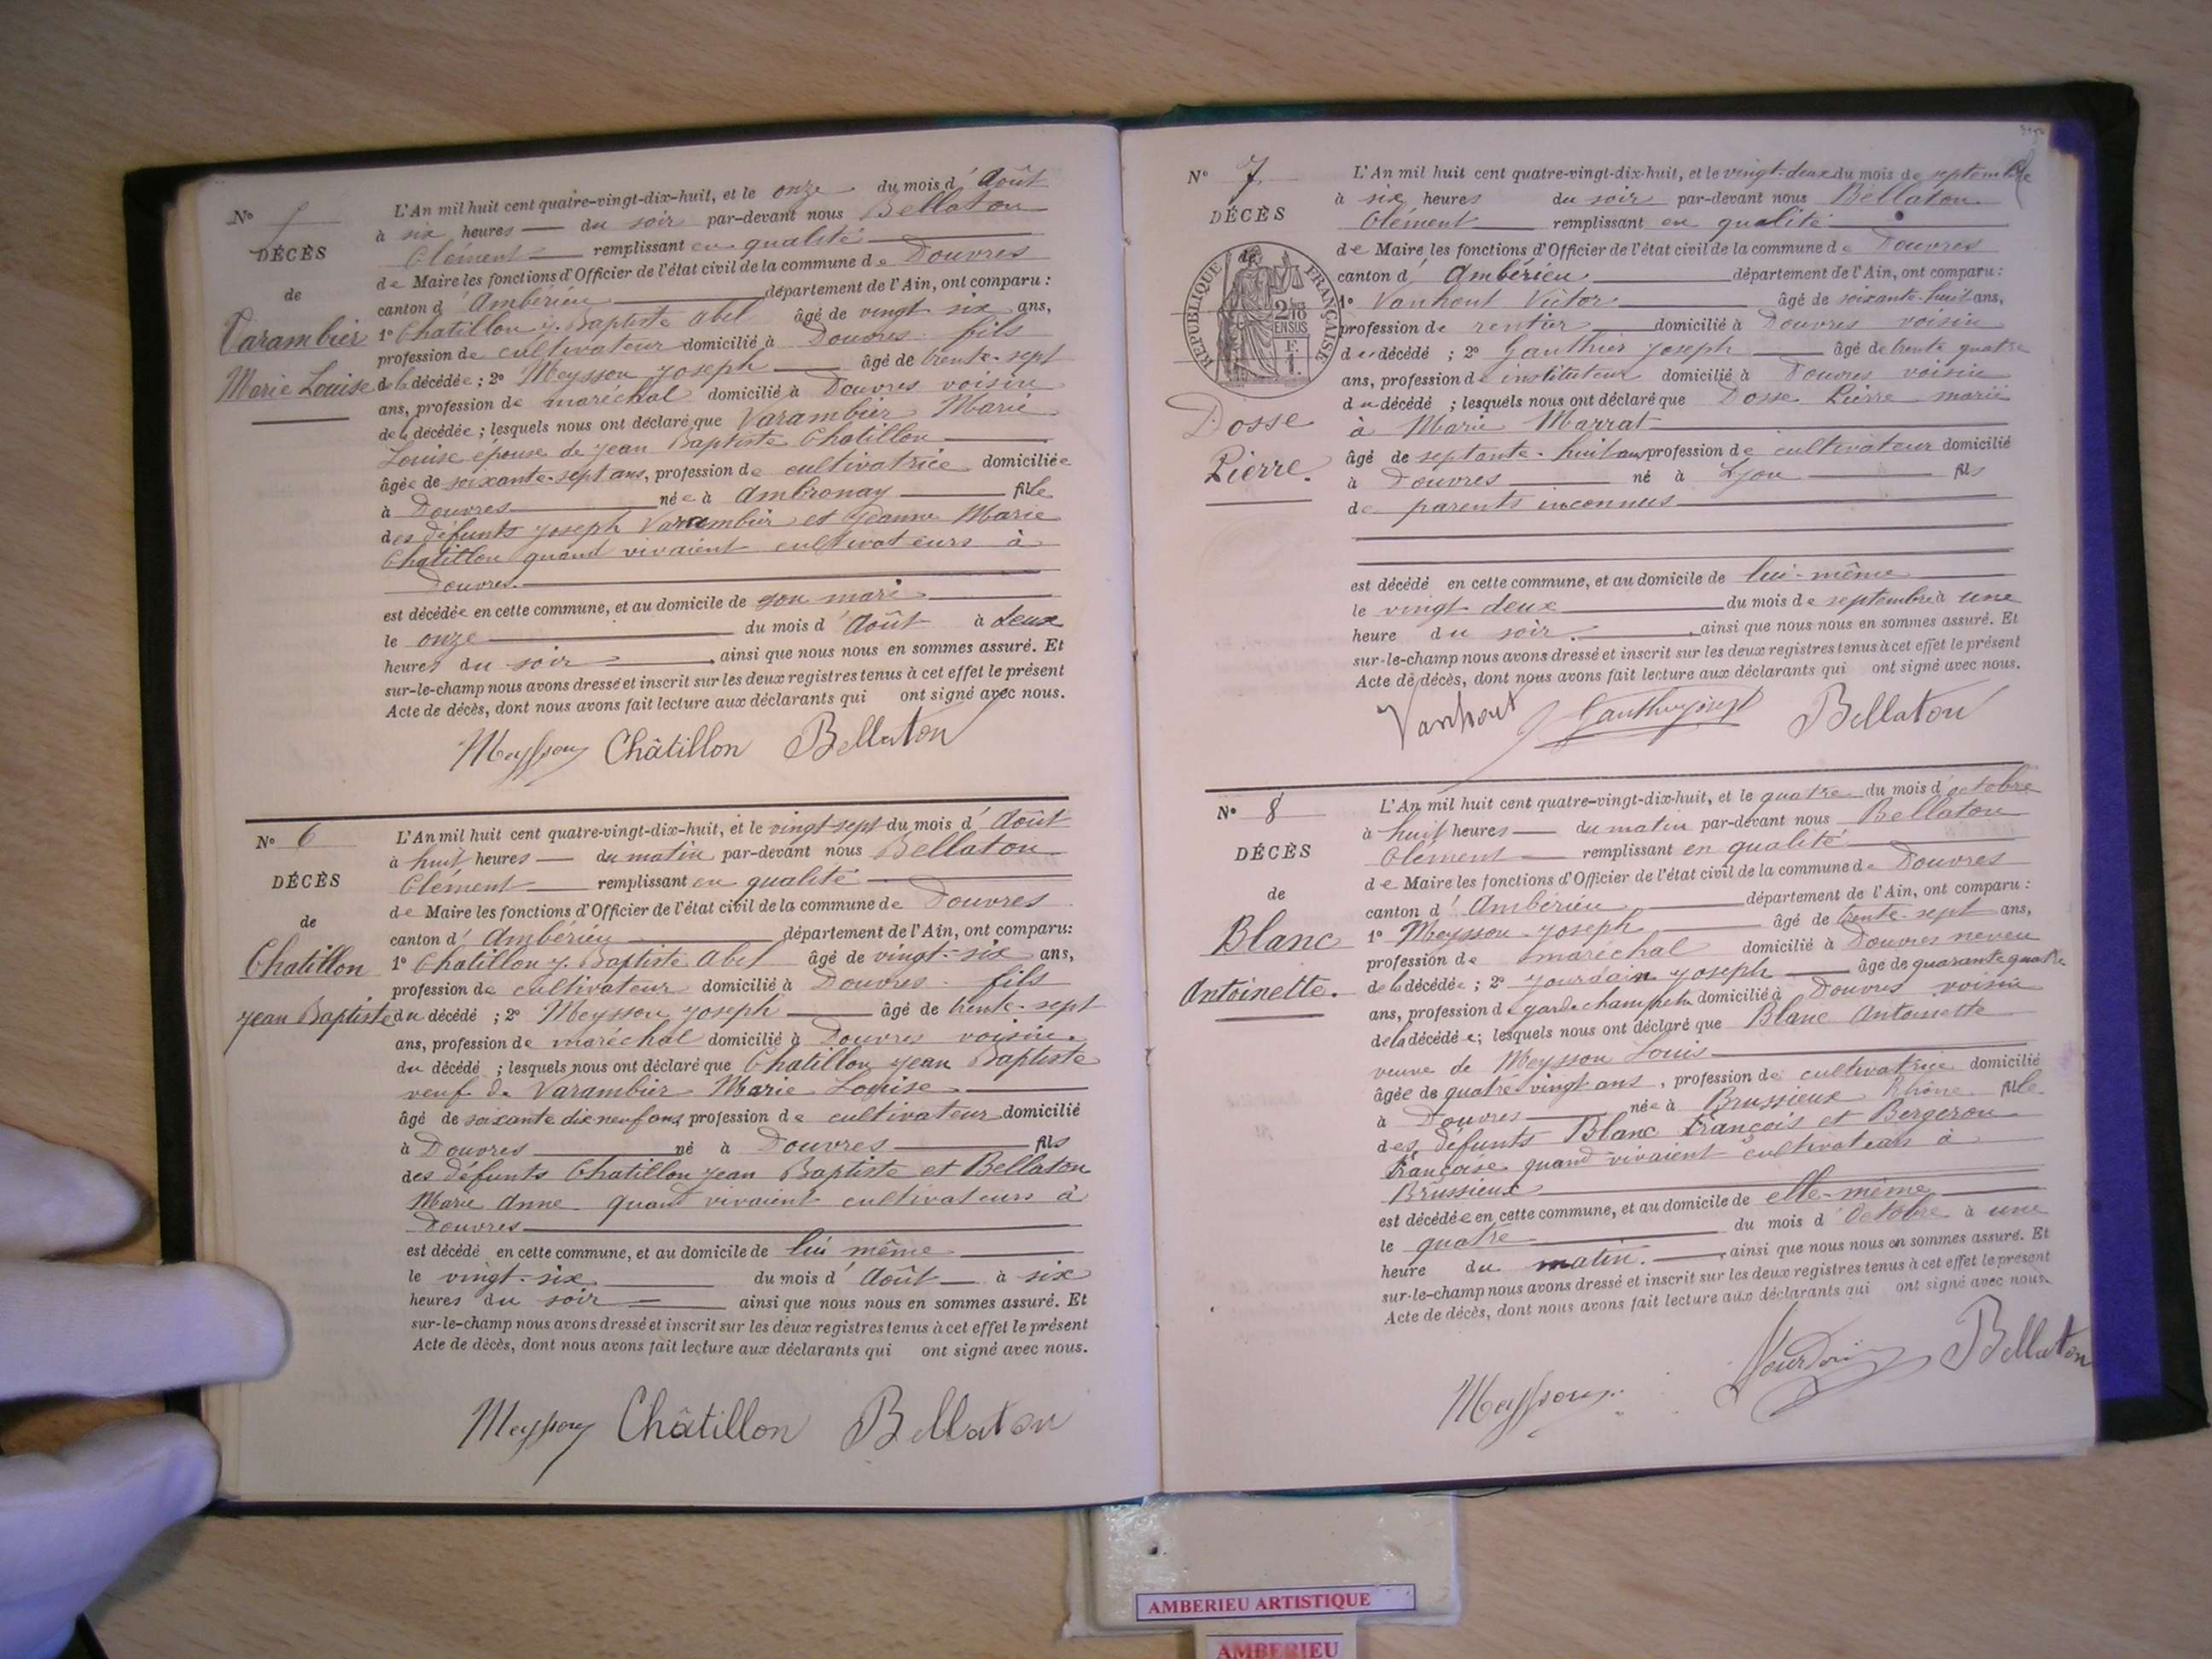 N° 5
DÉCÈS
de
Varambier
Marie Louise
L'An mil huit cent quatre-vingt-dix-huit, et le onze du mois d'Août
à six heures du soir par-devant nous Bellaton
Clément remplissant en qualité
de Maire les fonctions d'Officier de l'état civil de la commune de Douvres
canton d'Ambérieu département de l'Ain, ont comparu :
1° Chatillon J. Baptiste Abel âgé de vingt six ans,
profession de cultivateur domicilié à Douvres fils
de la décédée ; 2° Meysson Joseph âgé de trente-sept
ans, profession de maréchal domicilié à Douvres voisin
de la décédée ; lesquels nous ont déclaré que Varambier Marie
Louise épouse de Jean Baptiste Chatillon
âgée de soixante-sept ans, profession de cultivatrice domiciliée
à Douvres née à Ambronay fille
des défunts Joseph Varambier et Jeanne Marie
Chatillon quand vivaient cultivateurs à
Douvres.
est décédée en cette commune, et au domicile de son mari
le onze du mois d'Août à deux
heures du soir, ainsi que nous nous en sommes assuré. Et
sur-le-champ nous avons dressé et inscrit sur les deux registres tenus à cet effet le présent
Acte de décès, dont nous avons fait lecture aux déclarants qui ont signé avec nous.
Meysson Châtillon Bellaton
N° 6
DÉCÈS
de
Chatillon
Jean Baptiste
L'An mil huit cent quatre-vingt-dix-huit, et le vingt-sept du mois d'Août
à huit heures du matin par-devant nous Bellaton
Clément remplissant en qualité
de Maire les fonctions d'Officier de l'état civil de la commune de Douvres
canton d'Ambérieu département de l'Ain, ont comparu:
1° Chatillon J. Baptiste Abel âgé de vingt-six ans,
profession de cultivateur domicilié à Douvres fils
du décédé ; 2° Meysson Joseph âgé de trente-sept
ans, profession de maréchal domicilié à Douvres voisin
du décédé ; lesquels nous ont déclaré que Chatillon Jean Baptiste
veuf de Varambier Marie Louise
âgé de soixante dix neuf ans profession de cultivateur domicilié
à Douvres né à Douvres fils
des défunts Chatillon Jean Baptiste et Bellaton
Marie Anne quand vivaient cultivateurs à
Douvres
est décédé en cette commune, et au domicile de lui même
le vingt-six du mois d'Août à six
heures du soir ainsi que nous nous en sommes assuré. Et
sur-le-champ nous avons dressé et inscrit sur les deux registres tenus à cet effet le présent
Acte de décès, dont nous avons fait lecture aux déclarants qui ont signé avec nous.
Meysson Châtillon Bellaton
N° 7
DÉCÈS
de
RÉPUBLIQUE FRANÇAISE
2/10
EN SUS
F.
1.
Dosse
Pierre.
L'An mil huit cent quatre-vingt-dix-huit, et le vingt-deux du mois de septembre
à six heures du soir par-devant nous Bellaton
Clément remplissant en qualité
de Maire les fonctions d'Officier de l'état civil de la commune de Douvres
canton d'Ambérieu département de l'Ain, ont comparu :
1° Vanhout Victor âgé de soixante-huit ans,
profession de rentier domicilié à Douvres voisin
du décédé ; 2° Gauthier Joseph âgé de trente quatre
ans, profession d'instituteur domicilié à Douvres voisin
du décédé ; lesquels nous ont déclaré que Dosse Pierre marié
à Marie Marrat
âgé de septante-huit ans profession de cultivateur domicilié
à Douvres né à Lyon fils
de parents inconnus
est décédé en cette commune, et au domicile de lui-même
le vingt deux du mois de septembre à une
heure du soir, ainsi que nous nous en sommes assuré. Et
sur-le-champ nous avons dressé et inscrit sur les deux registres tenus à cet effet le présent
Acte de décès, dont nous avons fait lecture aux déclarants qui ont signé avec nous.
Vanhout Gauthier Joseph Bellaton
N° 8
DÉCÈS
de
Blanc
Antoinette.
L'An mil huit cent quatre-vingt-dix-huit, et le quatre du mois d'octobre
à huit heures du matin par-devant nous Bellaton
Clément remplissant en qualité
de Maire les fonctions d'Officier de l'état civil de la commune de Douvres
canton d'Ambérieu département de l'Ain, ont comparu :
1° Meysson Joseph âgé de trente-sept ans,
profession de maréchal domicilié à Douvres neveu
de la décédée ; 2° Jourdain Joseph âgé de quarante quatre
ans, profession de garde champêtre domicilié à Douvres voisin
de la décédée ; lesquels nous ont déclaré que Blanc Antoinette
veuve de Meysson Louis
âgée de quatre vingt ans, profession de cultivatrice domicilié
à Douvres née à Brussieux Rhône fille
des défunts Blanc François et Bergeron
Françoise quand vivaient cultivateurs à
Brussieux
est décédée en cette commune, et au domicile de elle-même
le quatre du mois d'Octobre à une
heure du matin, ainsi que nous nous en sommes assuré. Et
sur-le-champ nous avons dressé et inscrit sur les deux registres tenus à cet effet le présent
Acte de décès, dont nous avons fait lecture aux déclarants qui ont signé avec nous.
Meysson Jourdain Bellaton
AMBERIEU ARTISTIQUE
AMBERIEU